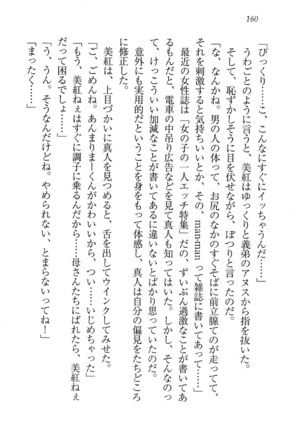 160
「びっくり……こ、こんなにすぐにイッちゃうんだ……」
うわごとのように言うと、美紅はゆっくりと義弟のアヌスから指を抜いた。
そして、恥ずかしそうに目を伏せながら、ぽつりと言ったのだ。
「な、なんかね。男の人の体って、お尻のなかのすぐそばに前立腺てのが走ってて、
それを刺激すると気持ちいいとか、その、man-man って雑誌に書いてあって……」
最近の女性誌は「女の子の一人エッチ特集」だの、ずいぶん過激なことが書いてあ
るもんだと、電車の中吊り広告などを見て真人も知っていた。しかし、そんなのっ
て、けっこういい加減なことが書いてあるに違いないとばかり思っていたのだが、
意外にも実用的だということを身をもって体感し、真人は自分の偏見をたちどころ
に修正した。
もう、美紅は、上目づかいに真人を見つめると、舌を出してウインクしてみせた。
「ご、ごめんね。あんまりまーくんがかわいいから、つい……いじめちゃった」
「もう、美紅ねぇはすぐに調子に乗るんだから……母さんたちにばれたら、美紅ねぇ
だって困るでしょ……」
「う、うん。そうなんだけどね。やめられない、とまらないってね！」
「まったく……」